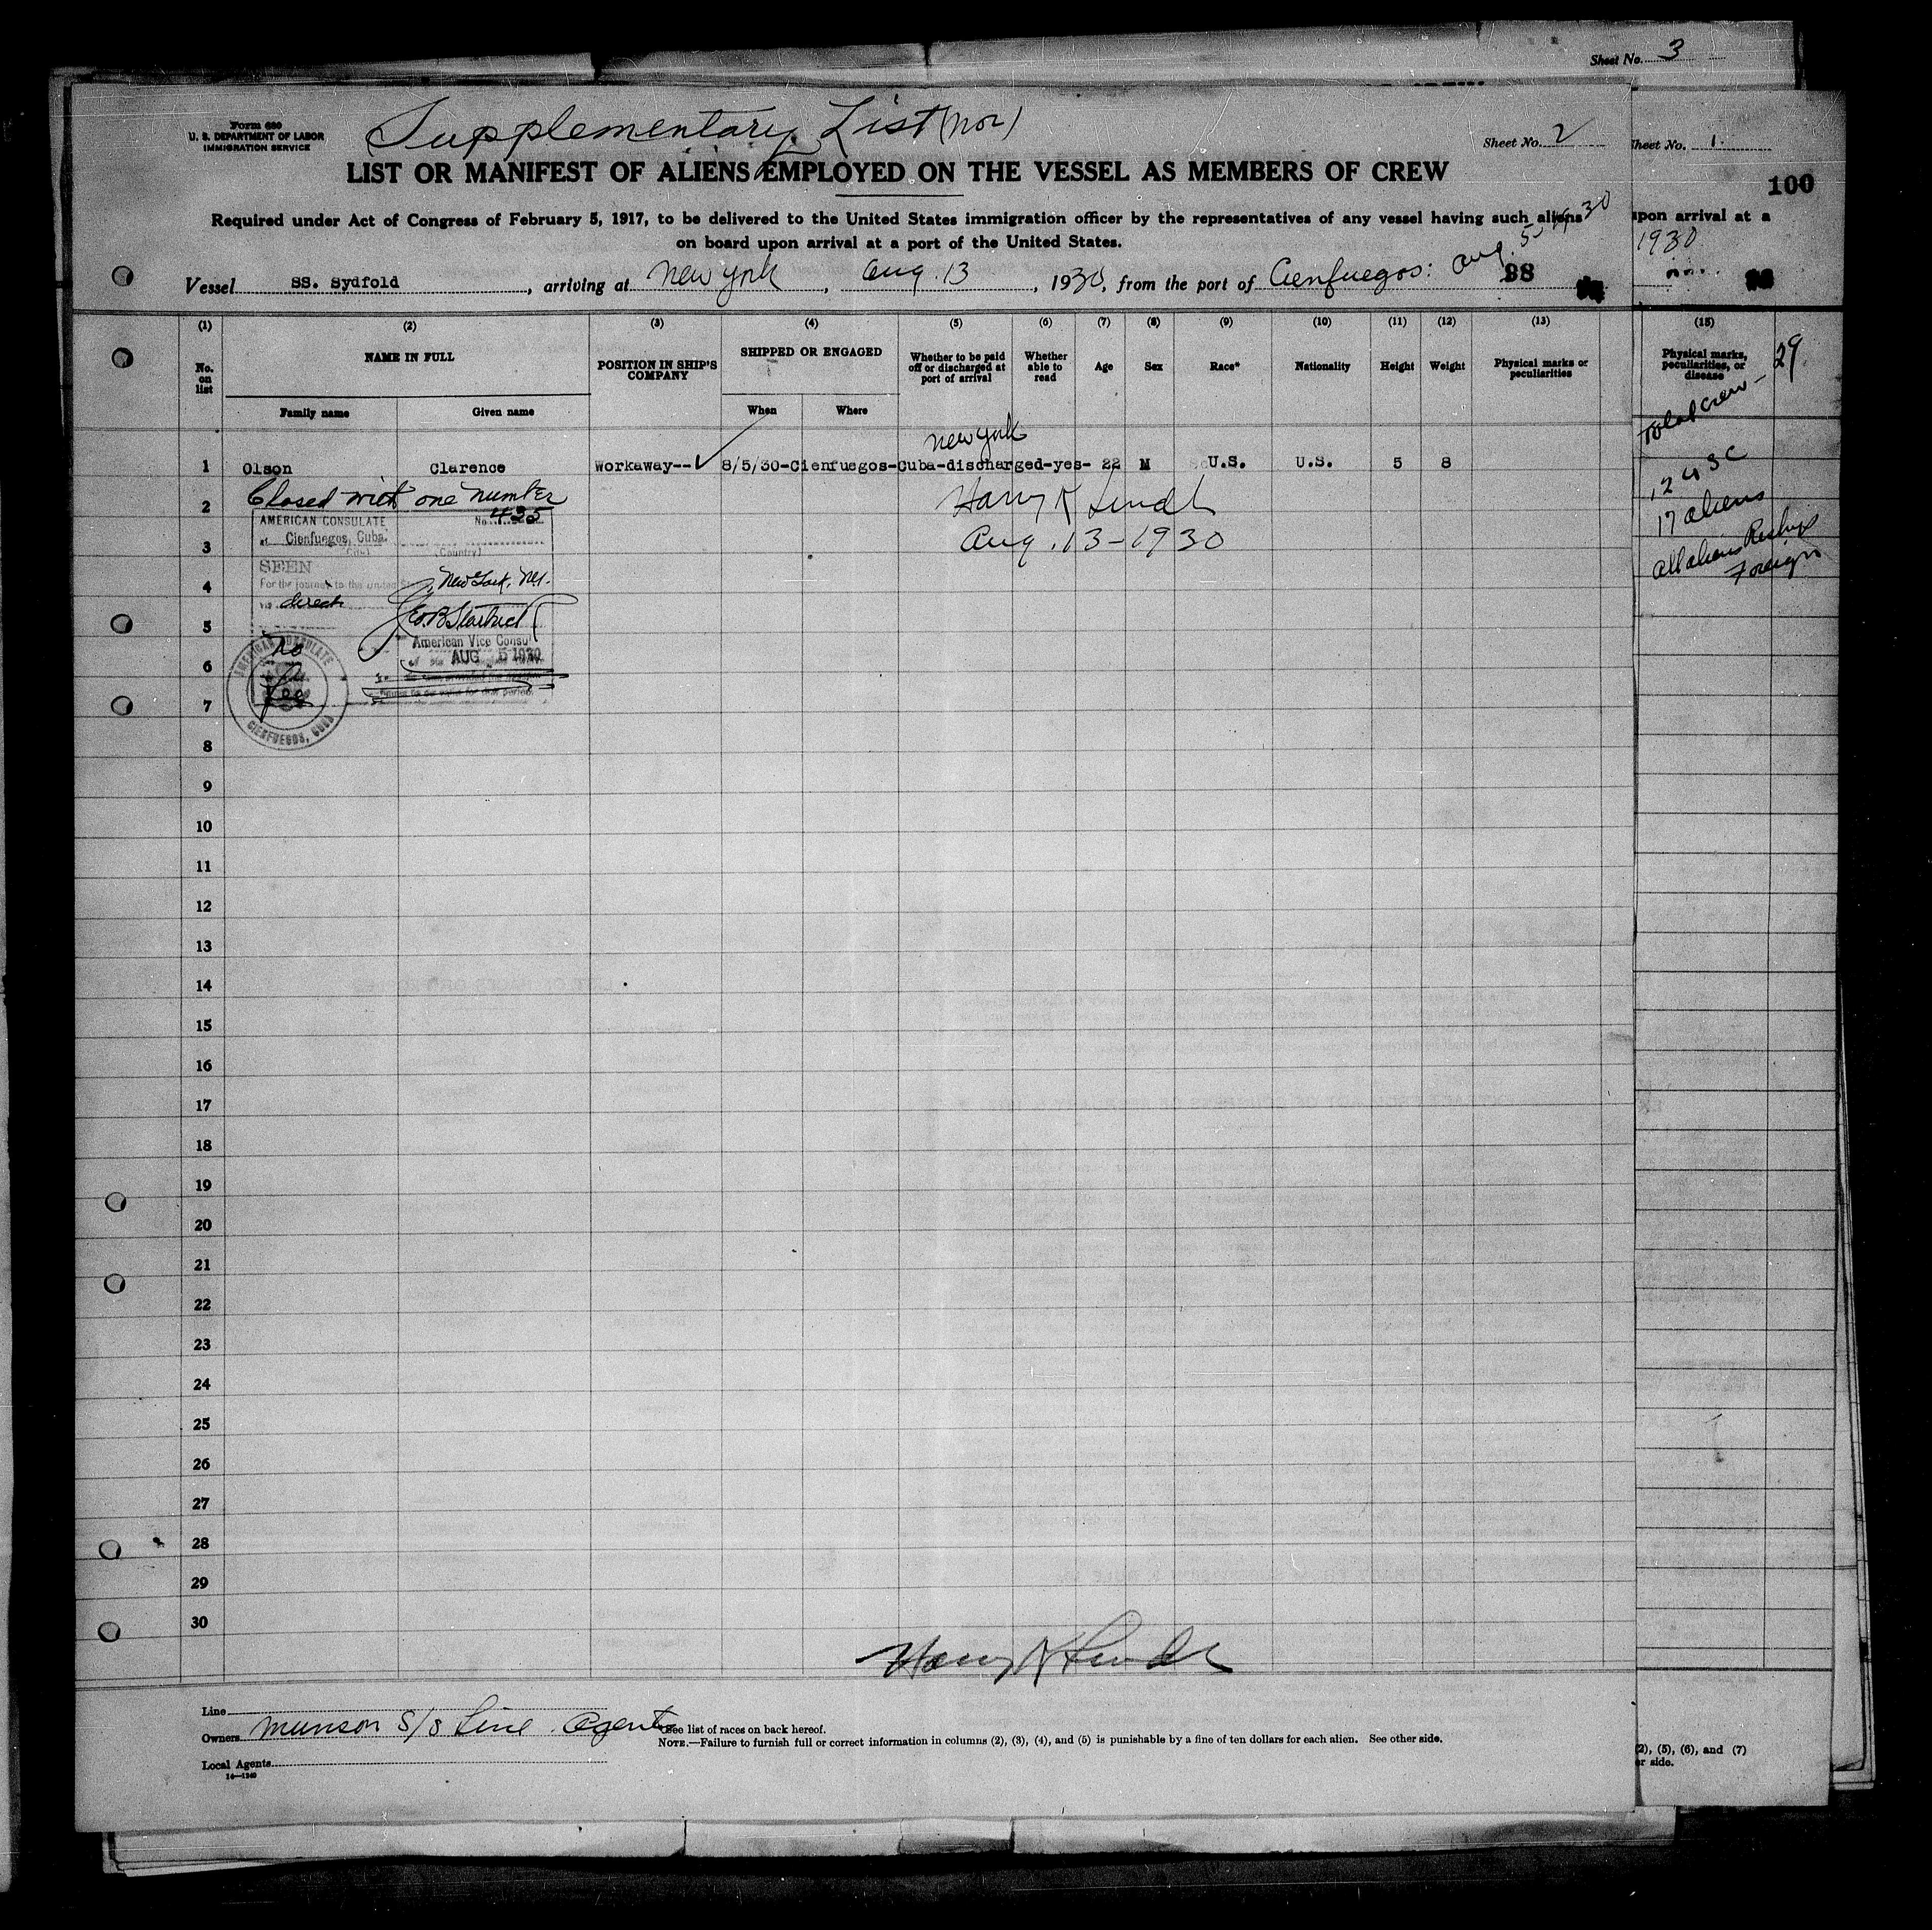 Sheet No. 3
Form 680
U. S. DEPARTMENT OF LABOR
IMMIGRATION SERVICE
Supplementary List (Nor)
Sheet No. 2
Sheet No. 1.
100
LIST OR MANIFEST OF ALIENS EMPLOYED ON THE VESSEL AS MEMBERS OF CREW
Required under Act of Congress of February 5, 1917, to be delivered to the United States immigration officer by the representatives of any vessel having such aliens
on board upon arrival at a port of the United States.
upon arrival at a
1930
Vessel SS. Sydfold, arriving at New York, Aug. 13, 1930, from the port of Cienfuegos: Aug. 5, 1930
98
(1) (2) (3) (4) (5) (6) (7) (8) (9) (10) (11) (12) (13)
No. on list
NAME IN FULL
Family name
Given name
POSITION IN SHIP'S COMPANY
SHIPPED OR ENGAGED
When
Where
Whether to be paid off or discharged at port of arrival
Whether able to read
Age
Sex
Race*
Nationality
Height
Weight
Physical marks or peculiarities
(15)
Physical marks, peculiarities, or disease
29
Total crew-
12 USC
17 aliens
All aliens Reship
Foreign
New York
1 Olson Clarence Workaway-- 8/5/30-Cienfuegos-Cuba-discharged-yes- 22 M U.S. U.S. 5 8
Closed with one number
2
Harry K
AMERICAN CONSULATE No. 435
at Cienfuegos, Cuba.
(City) (Country)
3
Aug. 13-1930
SEEN
For the journey to the United States
4
New York, N.Y.
via direct
5
American Vice Consul
AUG 5 1930
6
No
Fee
AMERICAN CONSULATE
CIENFUEGOS, CUBA
7
8
9
10
11
12
13
14
15
16
17
18
19
20
21
22
23
24
25
26
27
28
29
30
Harry K
Line
Owners Munson S/S Line Agents
Local Agents
14—1240
*See list of races on back hereof.
NOTE.—Failure to furnish full or correct information in columns (2), (3), (4), and (5) is punishable by a fine of ten dollars for each alien. See other side.
(2), (5), (6), and (7)
er side.